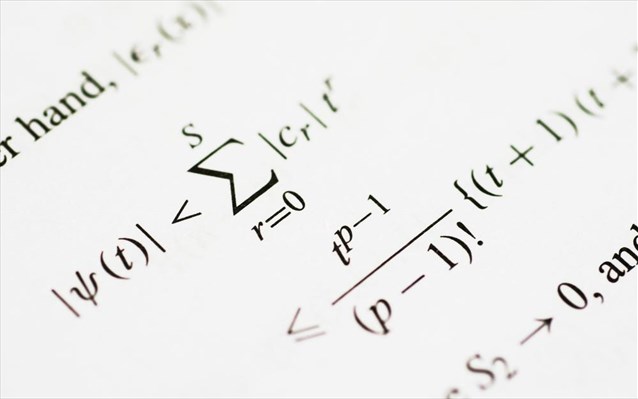 er hand, |ϵᵣ(x)|
|ψ(t)| < ∑_{r=0}^{S} |cᵣ| tʳ
≤ \frac{t^{p−1}}{(p − 1)!} {(t + 1)(t +
S₂ → 0, and